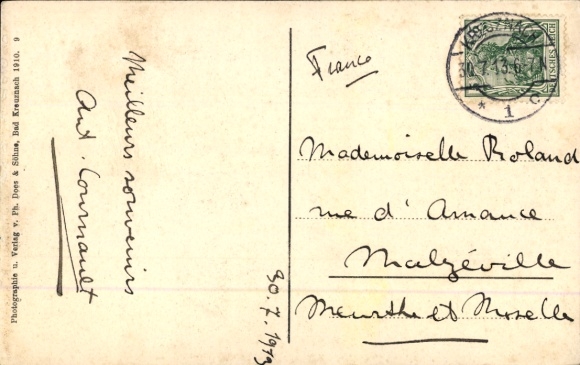 Photographie u. Verlag v. Ph. Dees & Söhne, Bad Kreuznach 1910. 9
Meilleurs souvenirs
Ant. Cournault
30.7.1913
Franco
KREUZNACH
30.7.13.6-7N
* 1 c
DEUTSCHES REICH
Mademoiselle Roland
rue d'Amance
Malzéville
Meurthe et Moselle